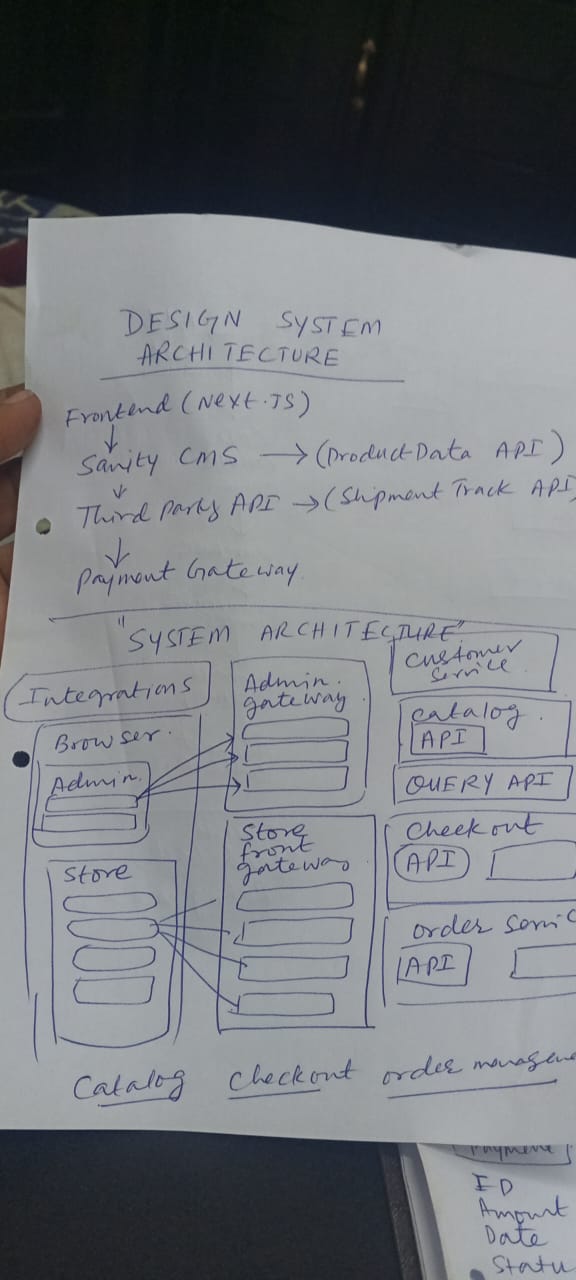 DESIGN SYSTEM
ARCHITECTURE
Frontend (Next.JS)
↓
Sanity CMS → (Product Data API)
↓
Third Party API → (Shipment Track API)
↓
Payment Gateway
"SYSTEM ARCHITECTURE"
Integrations
Browser.
Admin.
Store
Admin.
gateway
Store
front
gateway
Customer
Service.
Catalog.
API
QUERY API
Checkout
API
order Servic
API
Catalog Checkout order managemen
Payment
ID
Amount
Date
Statu